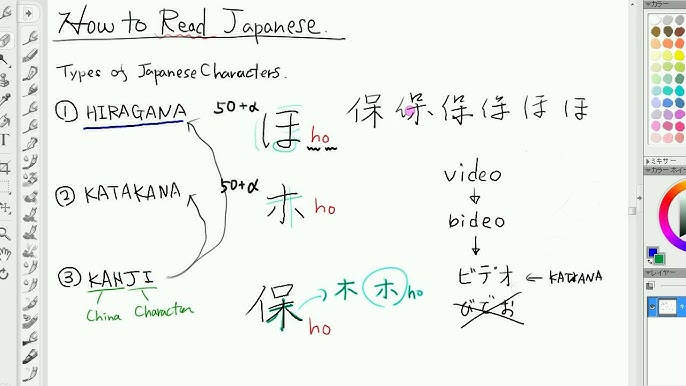 How to Read Japanese.
Types of Japanese Characters.
① HIRAGANA 50+α ほ ho
保 保 保 保 ほ ほ
② KATAKANA 50+α ホ ho
③ KANJI 保 ho → 木 ホ ho
China Character
video
↓
bideo
↓
ビデオ ← KATAKANA
びでお
カラー
ミキサー
カラー ホイー
レイヤー